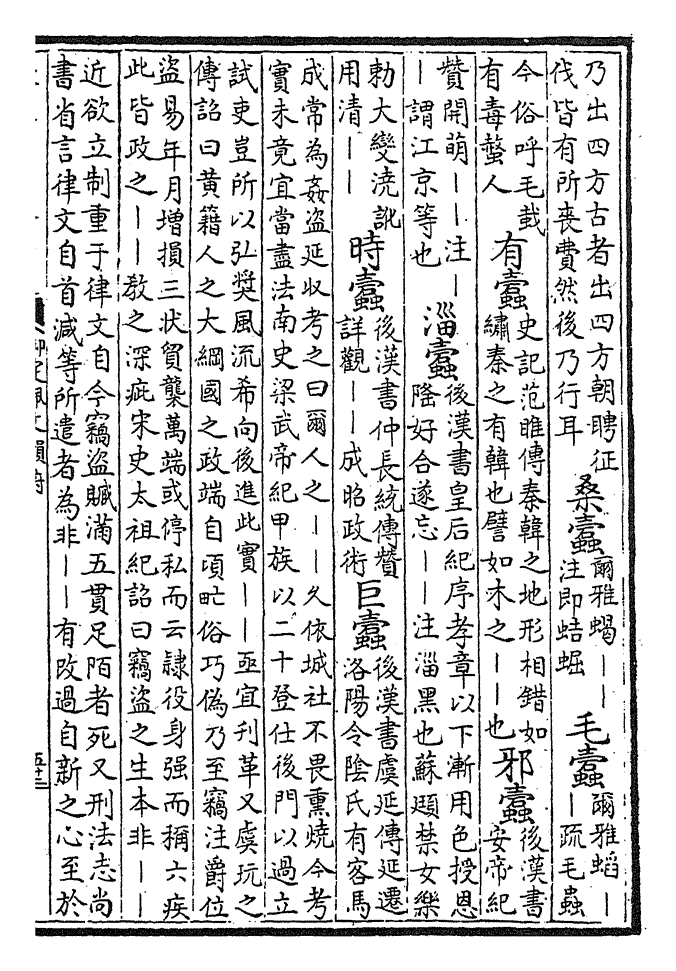 乃出四方古者出四方朝聘征
伐皆有所喪費然後乃行耳
桑蠹
爾雅蝎——
注即蛣𧌑
毛蠹
爾雅蜭—
—疏毛蟲
今俗呼毛蛓
有毒螫人
有蠹
史記范雎傳秦韓之地形相錯如
繡秦之有韓也譬如木之——也
邪蠹
後漢書
安帝紀
贊開萌——注—
—謂江京等也
淄蠹
後漢書皇后紀序孝章以下漸用色授恩
隆好合遂忘——注淄黑也蘇頲禁女樂
勅大變澆訛
用清——
時蠹
後漢書仲長統傳贊
詳觀——成昭政術
巨蠹
後漢書虞延傳延遷
洛陽令陰氏有客馬
成常為姦盜延収考之曰爾人之——久依城社不畏熏燒今考
實未竟宜當盡法南史梁武帝紀甲族以二十登仕後門以過立
試吏豈所以弘奨風流希向後進此實——亟宜刋革又虞玩之
傳詔曰黄籍人之大綱國之政端自頃甿俗巧偽乃至竊注爵位
盜易年月增損三状貿襲萬端或停私而云隷役身强而稱六疾
此皆政之——教之深疵宋史太祖紀詔曰竊盜之生本非——
近欲立制重于律文自今竊盜贓滿五貫足陌者死又刑法志尚
書省言律文自首減等所遣者為非——有改過自新之心至於